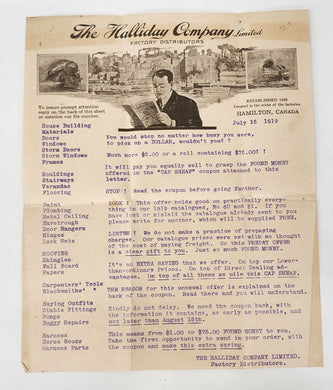 The Halliday Company Limited
FACTORY DISTRIBUTORS
To insure prompt attention
reply on the back of this sheet
or mention our file number.
ESTABLISHED
Located in the center of the factories.
HAMILTON, CANADA
July 15 1919
House Building
Materials
Doors
Windows
Storm Doors
Storm Windows
Frames
Mouldings
Stairways
Verandas
Flooring
Paint
Plumbing
Metal Ceiling
Eavetrough
Door Hangers
Hinges
Lock Sets
ROOFING
Shingles
Wall Board
Papers
Carpenters' Tools
Blacksmiths' "
Haying Outfits
Stable Fittings
Pumps
Buggy Repairs
Harness
Horse Goods
Harness Parts
You would stop no matter how busy you were,
to pick up a DOLLAR, wouldn't you?
Much more $5.00 or a roll containing $75.00!
It will pay you equally well to grasp the FOUND MONEY
offered in the "CAP SHEAF" coupon attached to this
letter.
STOP! Read the coupon before going further.
LOOK! This offer holds good on practically every-
thing in our 1919 catalogues, No 60 and 61. If you
have lost or mislaid the catalogue already sent to you
please write for another, which will be supplied FREE.
LISTEN! We do not make a practice of preparing
charges. Our catalogue prices were set with no thought
of the cost of paying freight. So this PREPAY OFFER
is a clear gift to you. Just so much FOUND MONEY.
It's an EXTRA SAVING that we offer. On top our Lower-
than-ordinary Prices. On top of Direct Dealing ad-
vantages. On top of all these we pile this CAP SHEAF.
THE REASON for this unusual offer is explained on the
back of the coupon. Read there and you will understand.
Kindly do not delay. We need the coupon back, with
the information it contains, as early as possible, and
not later than August 15th.
This means from $1.00 to $75.00 FOUND MONEY to you.
Take the first opportunity to send in your order, with
the coupon and make this extra saving.
THE HALLIDAY COMPANY LIMITED.
Factory Distributors.